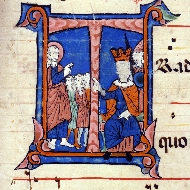 T
Rad
quo